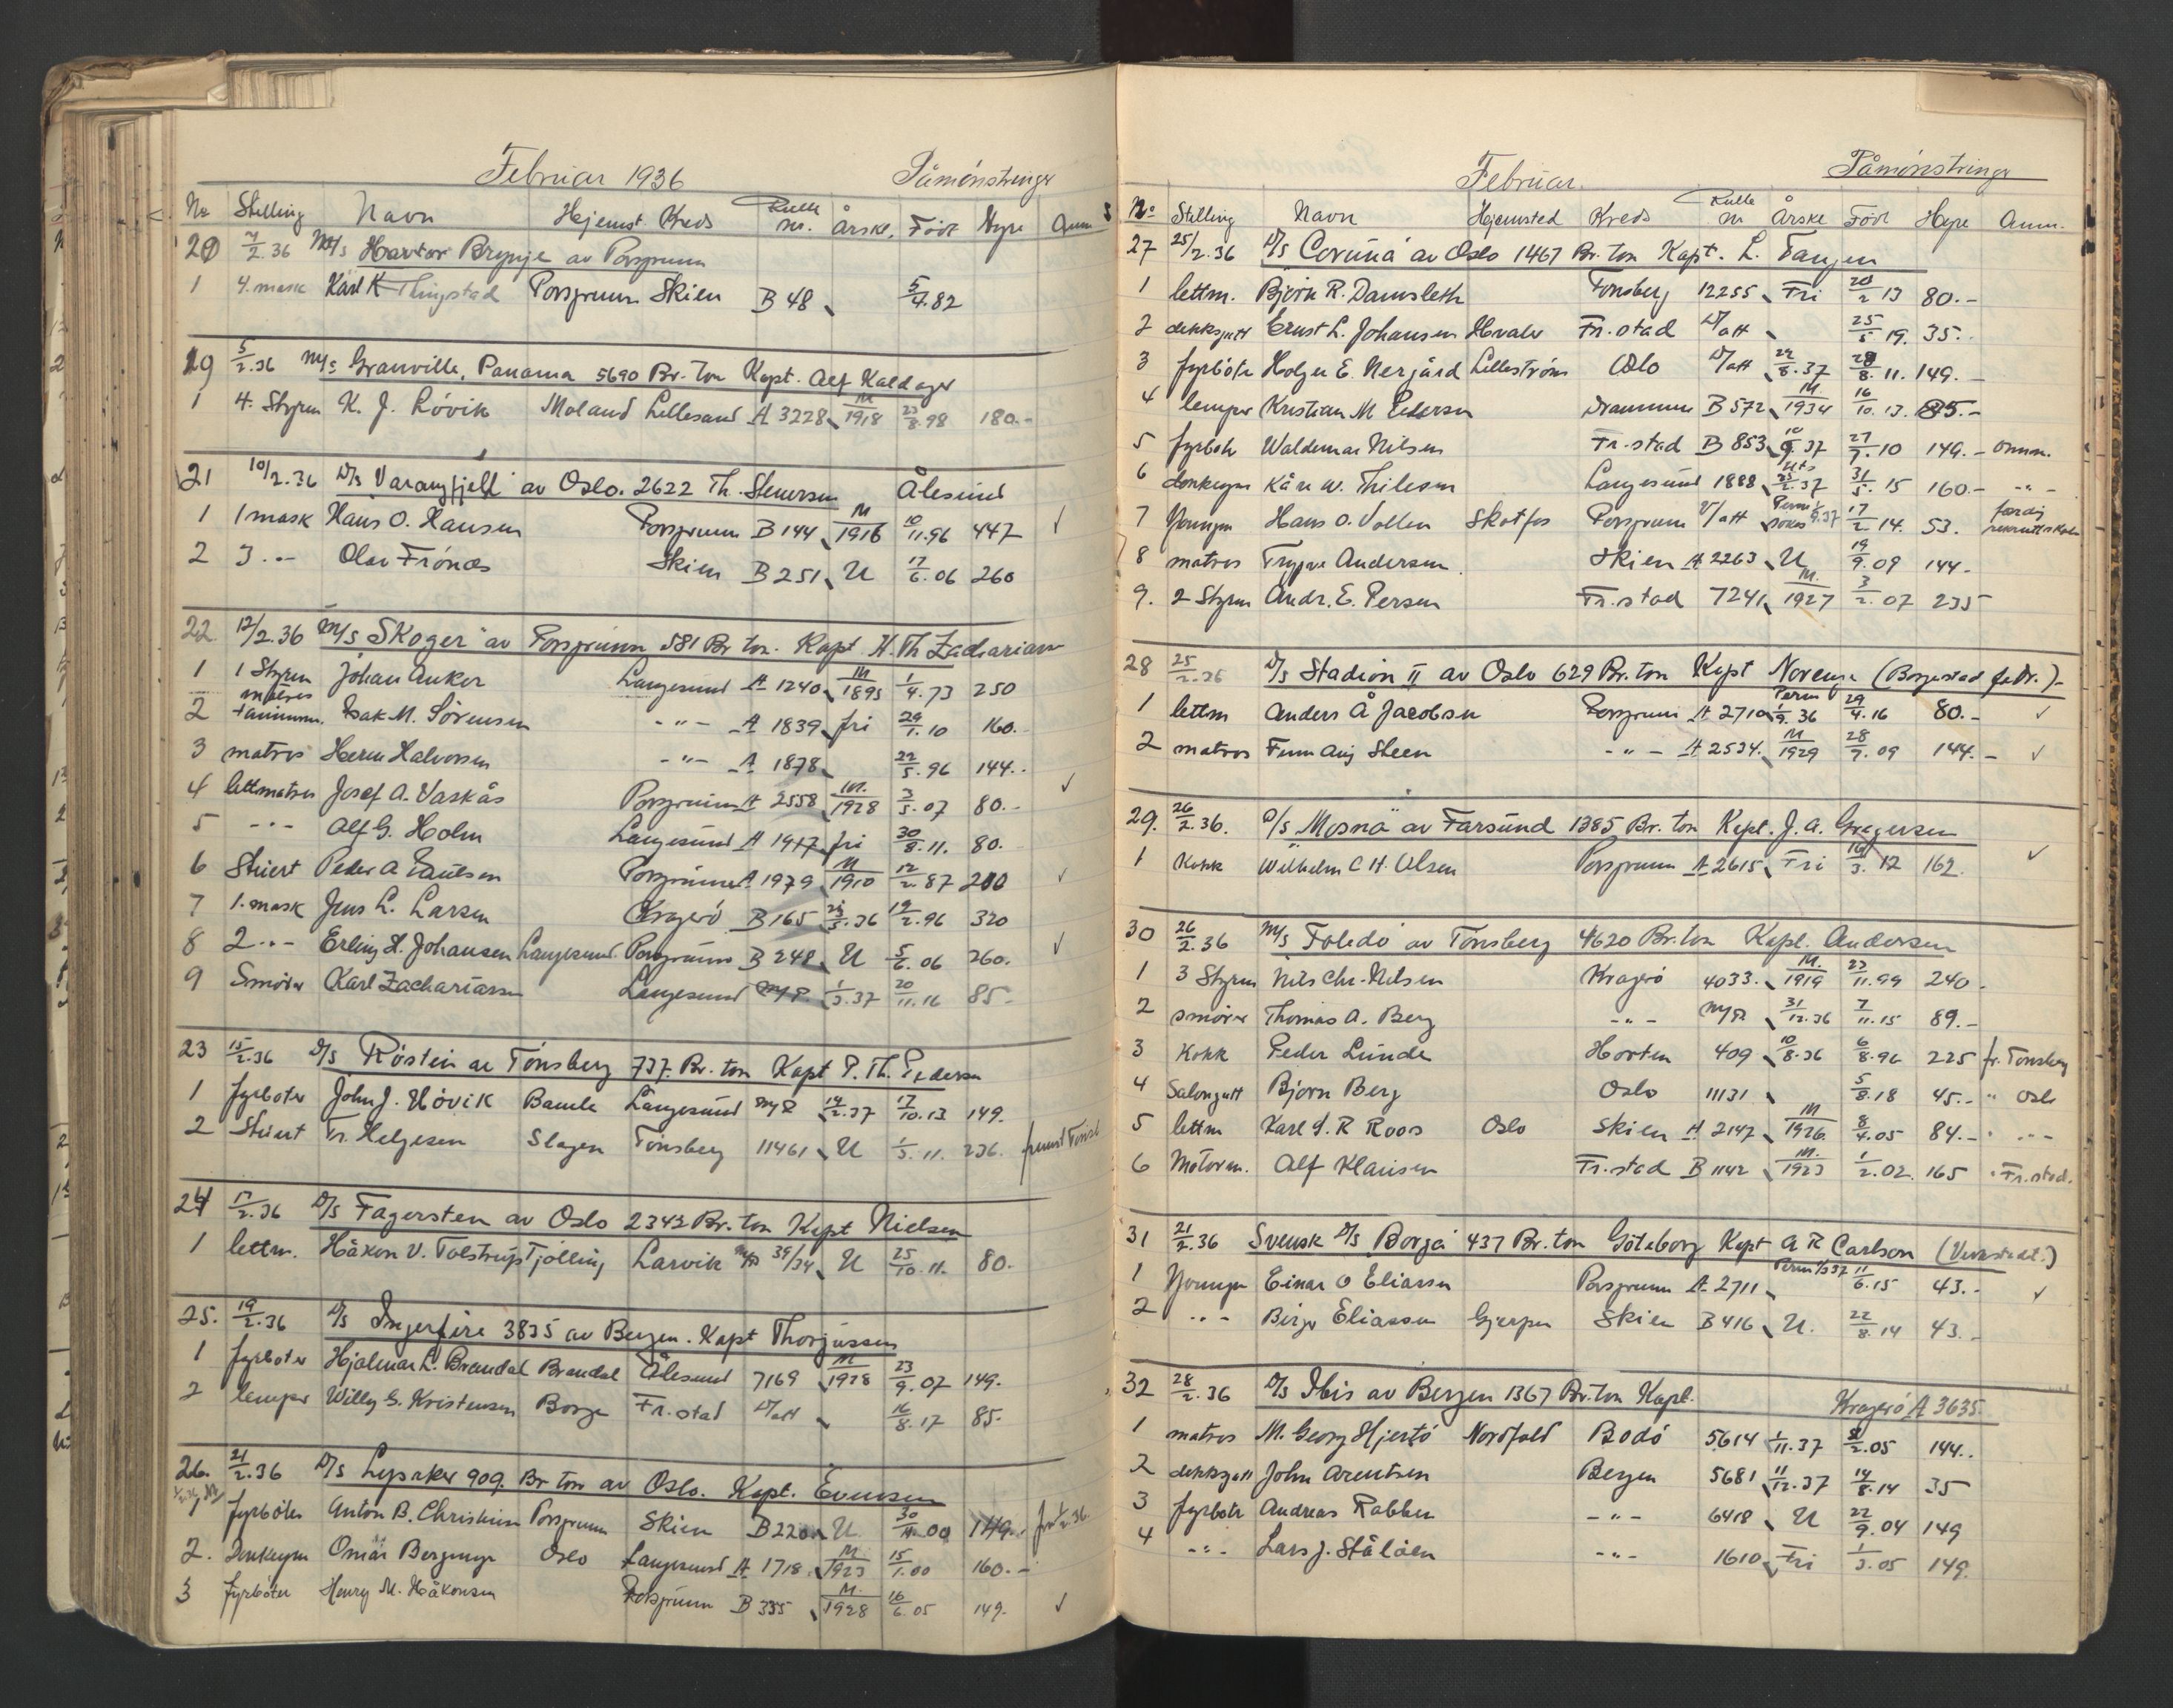 Februar 1936 Påmönstringer
No Stilling Navn Hjemst. Kreds Rulle nr. Årskl. Född Hyre Anm.
20 4/2.36 M/s Brynje av Porsgrunn
1 4. mask Karl K Thingstad Porsgrunn Skien B 48 5/4.82
19 5/2.36 M/s Granville, Panama 5690 Br. ton Kapt. Alf Kaldager
1 4. Styrm K. J. Lövik Moland Lillesand A 3228 M/1918 23/8.98 180.-
21 10/2.36 D/s Varangfjell av Oslo. 2622 Th. Ålesund
1 1 mask Hans O. Hansen Porsgrunn B 144 M/1916 10/11.96 447 ✓
2 3 -"- Olav Frönæs Skien B 251 U 17/6.06 260
22 12/2.36 M/s "Skoger" av Porsgrunn 581 Br ton. Kapt H. Th Zachariassen
1 1 Styrm Johan Anker Langesund A 1240 M/1895 1/4.73 250
2 matros tømmerm. Isak M. Sörensen -"- A 1839 fri 29/1.10 160.-
3 matros Herm Halvorsen -"- A 1878 22/5.96 144.-
4 lettmatros Josef A. Vaskås Porsgrunn A 2558 M/1928 3/5.07 80.- ✓
5 -"- Alf G. Holm Langesund A 1917 fri 30/8.11. 80.
6 Stuert Peder A Paulsen Porsgrunn A 1979 M/1910 12/2.87 200 ✓
7 1. mask Jens L. Larsen Kragerö B 165 3.36 19/2.96 320
8 2 -"- Erling H. Johansen Langesund Porsgrunn B 248 U 5/6.06 260. ✓
9 Smörer Karl Zachariassen Langesund 1/3.37 20/11.16 85-
23 15/2.36 D/s Röstein av Tönsberg 737. Br. ton Kapt P. Th. Pedersen
1 fyrböter John J. Hövik Bamle Langesund 14/2.37 17/10.13 149.
2 Stuert Fr. Helgesen Slagen Tönsberg 11461 U 1/5.11. 236.
24 17/2.36 D/s Fagersten av Oslo 2342 Br. ton Kapt Nielsen
1 lettm. Håkon V. Tolstrup Tjölling Larvik 39/34 U 25/10.11. 80.
25. 19/2.36 D/s Ingerfire 3835 av Bergen. Kapt Thorjussen
1 fyrböter Hjalmar L. Brandal Brandal Ålesund 7169 M/1928 23/9.07 149.
2 lemper Willy G. Kristensen Borge Fr. stad U/att 16/8.17 85.
26. 21/2.36 D/s Lysaker 909. Br ton av Oslo. Kapt. Evensen
1 fyrböter Anton B. Christensen Porsgrunn Skien B 220 U 149.-
2. Donkeym Omar Oslo Langesund A 1718 M/1923 15/1.00 160.-
3 fyrböter Henry M. Håkonsen Porsgrunn B 335 M/1928 16/6.05 149. ✓
Februar. Påmönstringer
No Stilling Navn Hjemsted Kreds Rulle nr Årskl Född Hyre Anm.
27 25/2.36 D/s "Coruña" av Oslo 1467 Br. ton Kapt. L. Tangen
1 lettm. Björn R. Damsleth Tonsberg 12255 Fri 20/2 13 80.-
2 dekksgutt Ernst L. Johansen Hvaler Fr. stad U/att 25/5 19. 35.-
3 fyrböter Holger E. Nergård Lilleström Oslo U/att 22/8.37 28/8.11. 149.-
4 lemper Kristian M Pedersen Drammen B 572 M/1934 16/10.13. 85.-
5 fyrböter Waldemar Nilsen Fr. stad B 853 10/9.37 27/7.10 149.- Omm.
6 donkeym Kåre W. Thilesen Langesund 1888 37 31/5.15 160.- -"-
7 Youngm Hans O. Vollen Skotfos Porsgrunn U/att 17/2 14. 53. færdig rekruttskole
8 matros Trygve Andersen Skien A 2263 U 19/9.09 144-
9. 2 Styrm Andr. E. Persen Fr. stad 7241 M/1927 3/2.07 235
28 25/2.36 D/s Stadion II av Oslo 629 Br. ton Kapt (Borgestad)
1 lettm Anders Å Jacobsen Porsgrunn A 2710 Perm 1/9.36 29/4.16 80.- ✓
2 matros Finn Aug Steen -"- A 2534. M/1929 28/7.09 144.- ✓
29. 26/2.36. D/s "Mosnä" av Farsund 1385 Br. ton Kapt. J. A. Gregersen
1 Kokk Wilhelm C H. Olsen Porsgrunn A 2615 Fri 16/3.12 162. ✓
30 26/2.36 M/s "Toledo" av Tönsberg 4620 Br. ton Kapt. Andersen
1 3 Styrm Nils Chr. Nilsen Kragerö 4033. M./1919 23/11.99 240.
2 smörer Thomas A. Berg -"- 31/12.36 7/11.15 89.-
3 Kokk Peder Lunde Horten 409 10/8.36 6/8.96 225 fr. Tonsberg
4 Salongutt Bjorn Berg Oslo 11131 5/8.18 45.- " Oslo
5 lettm Karl S. R Roos Oslo Skien A 2147 M/1926. 8/4.05 84.- " -"-
6 Motorm. Alf Klausen Fr. stad B 1142 M./1923 1/2.02. 165 " Fr. stad.
31 21/2.36 Svensk D/s Borgå 437 Br. ton Göteborg Kapt A R Carlson
1 Youngm Einar O Eliassen Porsgrunn A 2711 11/6.15 43.- ✓
2 -"- Birger Eliassen Gjerpen Skien B 416 U. 22/8.14 43.-
32 28/2.36 D/s Ibis av Bergen 1367 Br. ton Kapt. Kragerö A 3635.
1 matros M. Georg Hjertö Nordfold Bodö 5614 1/11.37 2.05 144.-
2 dekksgutt John Arentsen Bergen 5681 11/12.37 14/8.14 35
3 fyrböter Andreas Rabben -"- 6418 U 22/9.04 149
4 -"- Lars J. Stålöen -"- 1610 Fri 1/3.05 149.